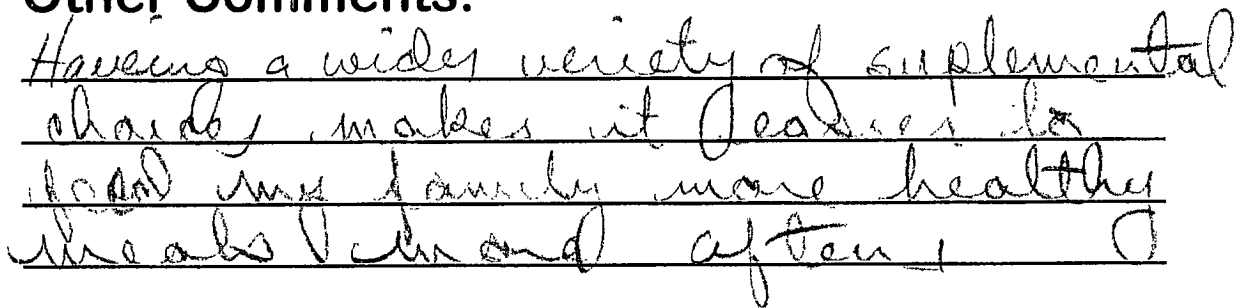 Other Comments:
Haveing a wider veriety of suplemental
choices makes it easier to
feed my family more healthy
meals more often.